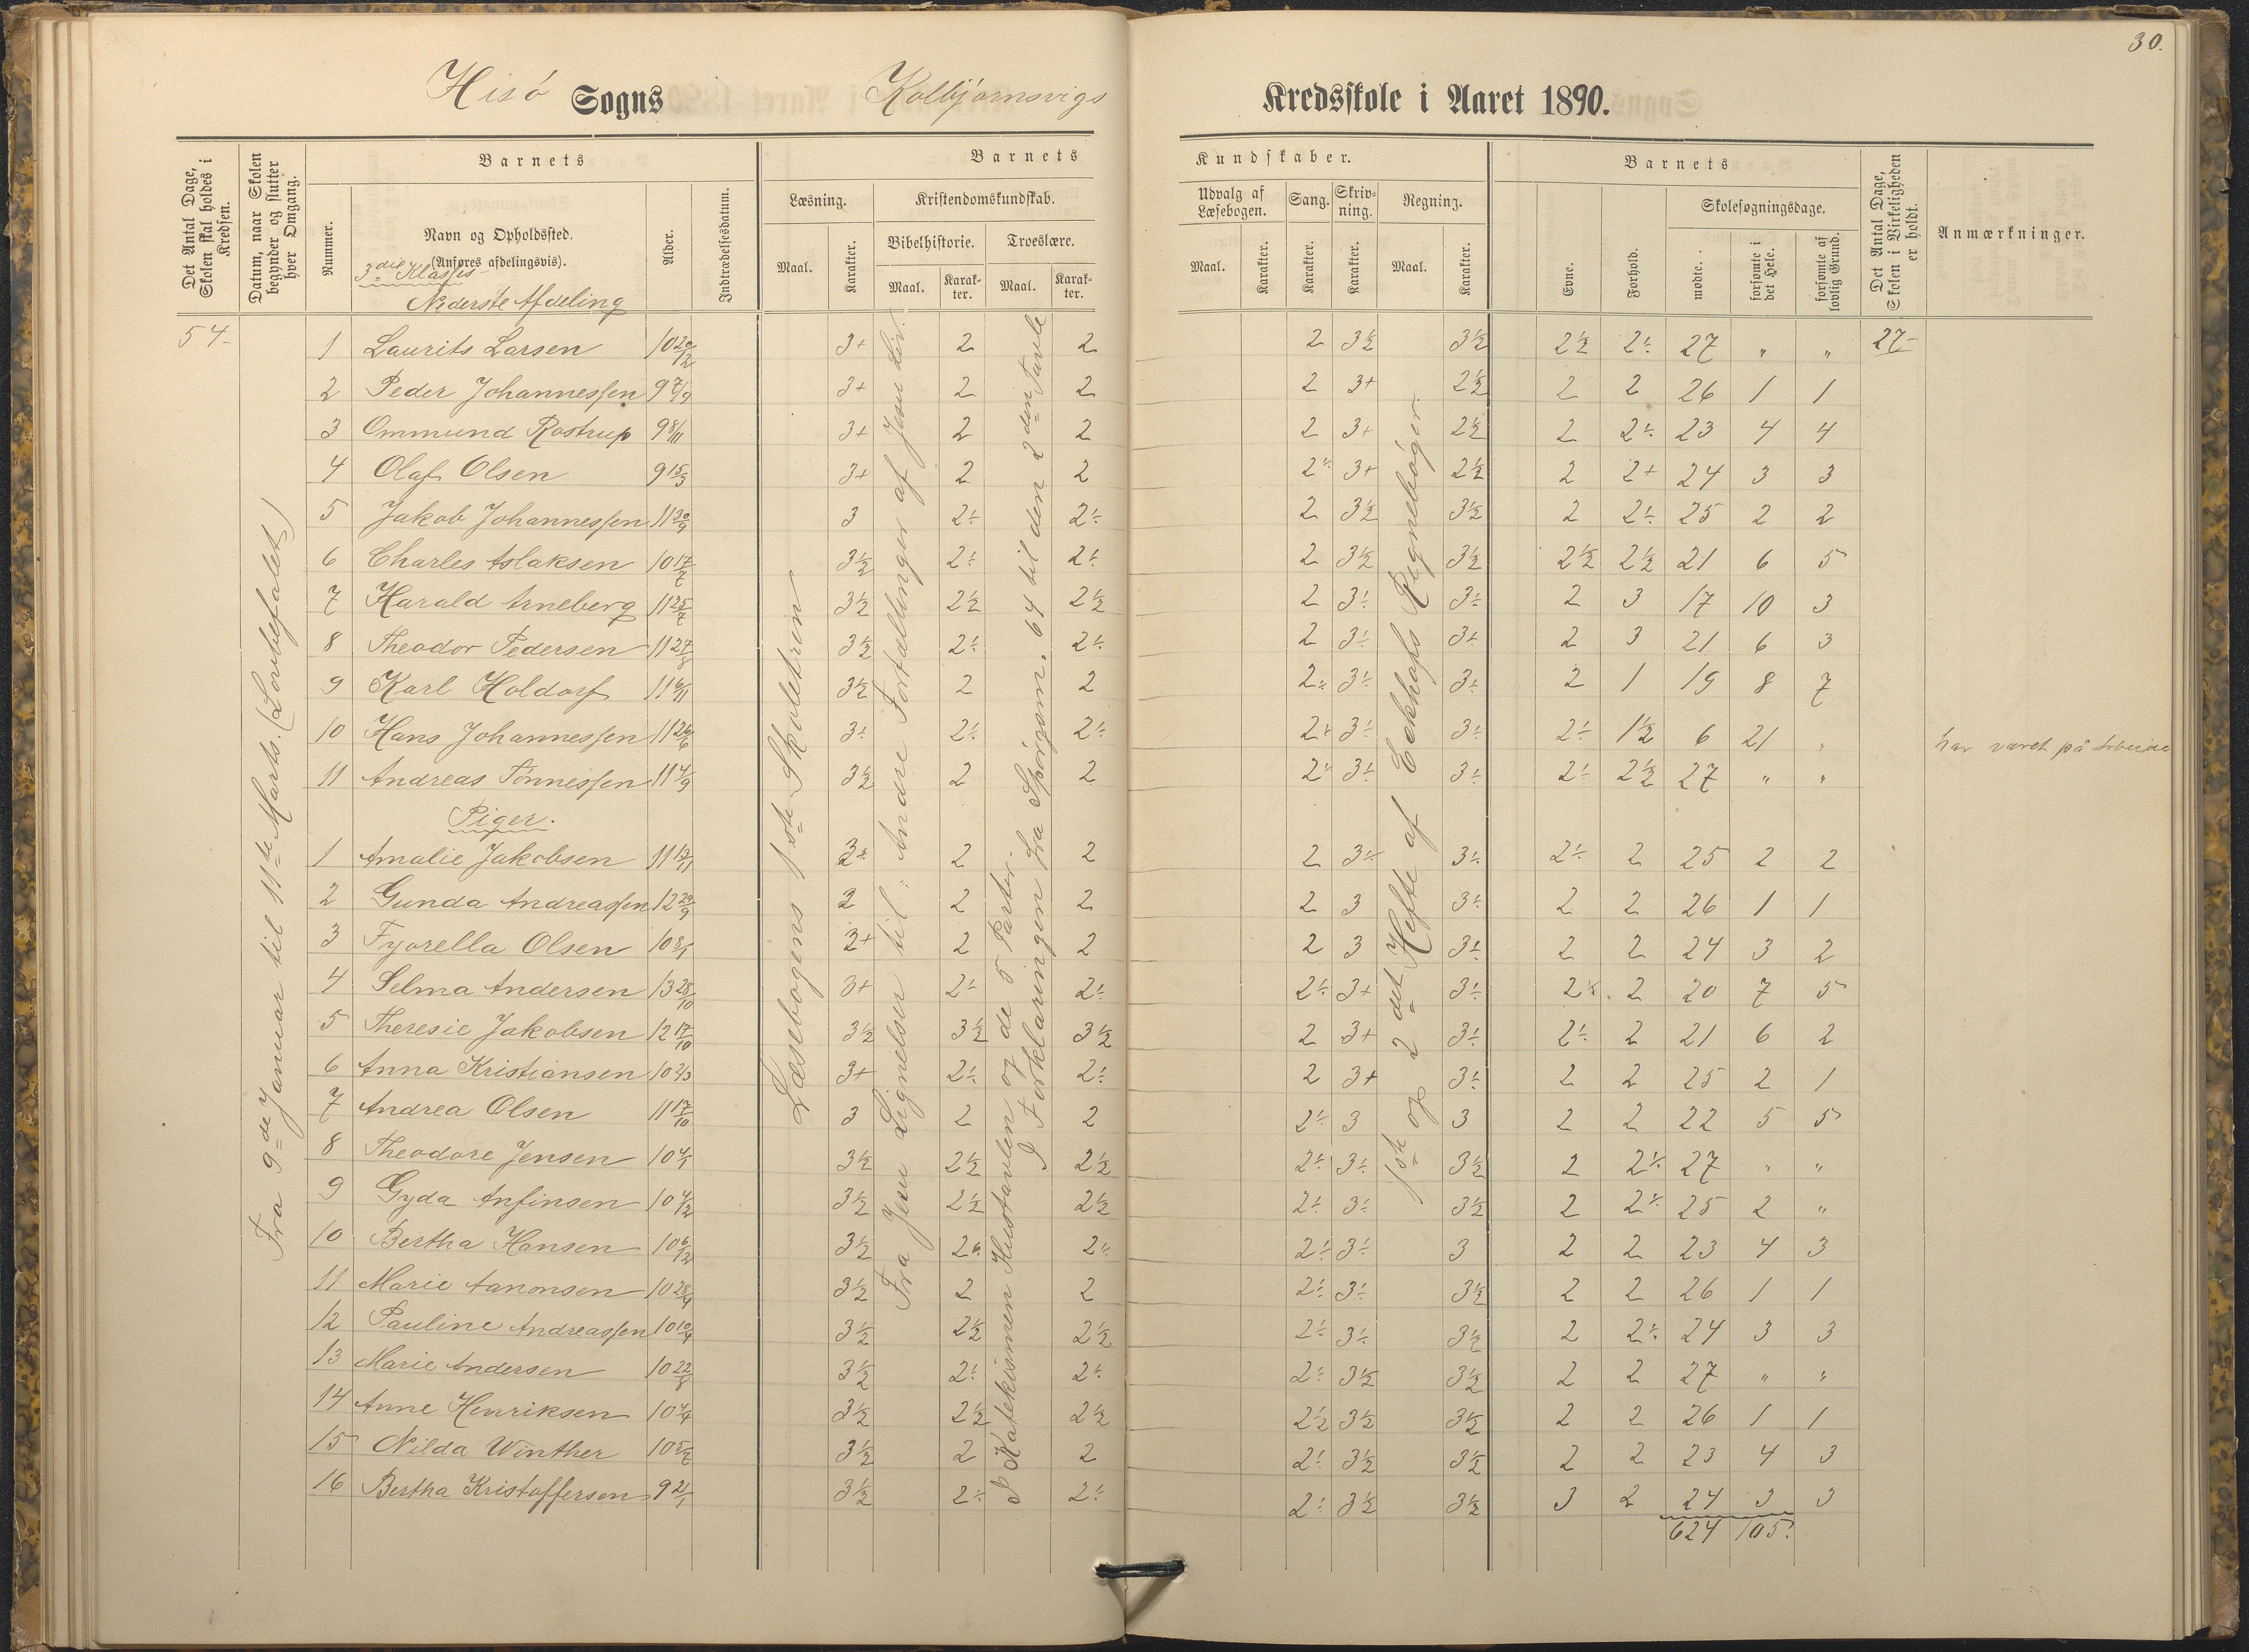 30.
Hisö Sogns Kolbjørnsvigs Kredsskole i Aaret 1890.
Det Antal Dage, Skolen skal holdes i Kredsen.
Datum, naar Skolen begynder og slutter hver Omgang.
Barnets
Nummer.
Navn og Opholdssted.
(Anføres afdelingsvis).
3die Klasses
Nederste Afdeling
Alder.
Indtrædelsesdatum.
Barnets Kundskaber.
Læsning.
Maal.
Karakter.
Kristendomskundskab.
Bibelhistorie.
Maal.
Karakter.
Troeslære.
Maal.
Karakter.
Udvalg af Læsebogen.
Maal.
Karakter.
Sang.
Karakter.
Skrivning.
Karakter.
Regning.
Maal.
Karakter.
Barnets
Evne.
Forhold.
Skolesøgningsdage.
mødte.
forsømte i det Hele.
forsømte af lovlig Grund.
Det Antal Dage, Skolen i Virkeligheden er holdt.
Anmærkninger.
54-
Fra 9de Januar til 11te Marts. (Lovbefalet)
Læsebogens 1ste Skoletrin
Fra Jesu Lignelser til: Andre Fortællinger af Jesu Liv.
I Katekismen Hustavlen og de 5 Parter.
I Forklaringen fra Spørgsm. 64 til den 2den Tavle
1ste og 2det Hefte af Eckhofs Regnebøger.
1 Laurits Larsen 10 20/12 3+ 2 2 2 3½ 3½ 2½ 2÷ 27 " " 27-
2 Peder Johannessen 9 7/9 3+ 2 2 2 3+ 2½ 2 2 26 1 1
3 Ommund Rostrup 9 8/11 3+ 2 2 2 3+ 2½ 2 2÷ 23 4 4
4 Olaf Olsen 9 15/3 3+ 2 2 2÷ 3+ 2½ 2 2+ 24 3 3
5 Jakob Johannessen 11 30/9 3 2÷ 2÷ 2 3½ 3½ 2 2÷ 25 2 2
6 Charles Aslaksen 10 17/7 3½ 2÷ 2÷ 2 3½ 3½ 2½ 2½ 21 6 5
7 Harald Arneberg 11 25/7 3½ 2½ 2½ 2 3÷ 3÷ 2 3 17 10 3
8 Theodor Pedersen 11 27/8 3½ 2÷ 2÷ 2 3÷ 3+ 2 3 21 6 3
9 Karl Holdorf 11 6/11 3½ 2 2 2÷ 3÷ 3÷ 2 1 19 8 7
10 Hans Johannessen 11 26/6 3÷ 2÷ 2÷ 2÷ 3÷ 3÷ 2÷ 1½ 6 21 " har været på Arbeide
11 Andreas Tønnessen 11 4/9 3½ 2 2 2÷ 3÷ 3÷ 2÷ 2½ 27 " "
Piger.
1 Amalie Jakobsen 11 13/11 3÷ 2 2 2 3÷ 3÷ 2÷ 2 25 2 2
2 Gunda Andreassen 12 29/9 2 2 2 2 3 3÷ 2 2 26 1 1
3 Fyorella Olsen 10 8/1 2+ 2 2 2 3 3÷ 2 2 24 3 2
4 Selma Andersen 13 28/10 3+ 2÷ 2÷ 2÷ 3+ 3÷ 2÷ 2 20 7 5
5 Theresie Jakobsen 12 17/10 3½ 3½ 3½ 2 3+ 3÷ 2÷ 2 21 6 2
6 Anna Kristiansen 10 2/3 3+ 2÷ 2÷ 2 3+ 3÷ 2 2 25 2 1
7 Andrea Olsen 11 17/10 3 2 2 2÷ 3 3 2 2 22 5 5
8 Theodore Jensen 10 4/1 3½ 2½ 2½ 2÷ 3÷ 3½ 2 2÷ 27 " "
9 Gyda Anfinsen 10 4/12 3½ 2½ 2½ 2÷ 3÷ 3½ 2 2÷ 25 2 "
10 Bertha Hansen 10 6/12 3½ 2÷ 2÷ 2÷ 3÷ 3 2 2 23 4 3
11 Marie Aanonsen 10 28/4 3½ 2 2 2÷ 3÷ 3½ 2 2 26 1 1
12 Pauline Andreassen 10 10/4 3½ 2½ 2½ 2÷ 3÷ 3½ 2 2÷ 24 3 3
13 Marie Andersen 10 22/8 3½ 2÷ 2÷ 2÷ 3½ 3½ 2 2 27 " "
14 Anne Henriksen 10 4/4 3½ 2½ 2½ 2½ 3½ 3½ 2 2 26 1 1
15 Nilda Winther 10 5/7 3½ 2 2 2÷ 3½ 3½ 2 2 23 4 3
16 Bertha Kristoffersen 9 21/1 3½ 2÷ 2÷ 2÷ 3½ 3½ 3 2 24 3 3
624 105.